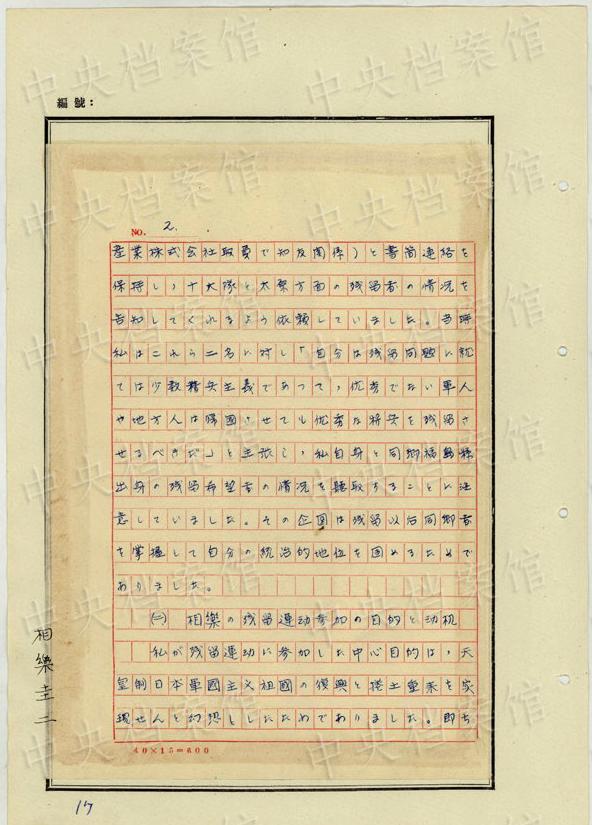 編號：
NO. 2.
産業株式会社取員で知友関係）と書簡連絡を
保持し、十大隊と太原方面の残留者の情况を
告知してくれるよう依頼していました。当時
私はこれら二名に対し「自分は残留問題に就
ては少数精兵主義であって，优秀でない軍人
や地方人は帰國させても优秀な将兵を残留さ
せるべきだ」と主张し，私自身と同郷福島縣
出身の残留希望者の情况を聴取することに注
意していました。その企図は残留以后同郷者
を掌握して自分の統治的地位を固めるためで
ありました。
㈡　相樂の残留運动参加の目的と动机
私が残留運动に参加した中心目的は，天
皇制日本軍國主义祖國の復興と捲土重来を実
現せんと幻想としたためでありました。即ち
40×15=600
相樂圭二
17
中央档案馆